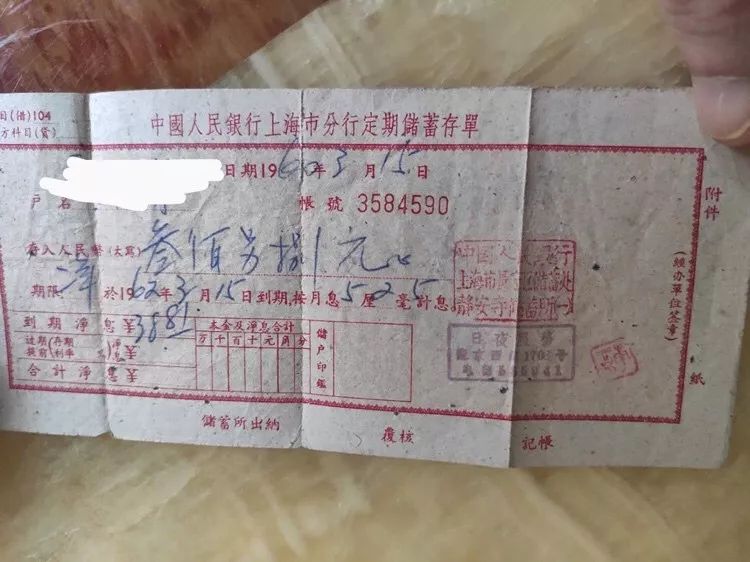 目(借)104
方科目(貸)
中國人民銀行上海市分行定期儲蓄存單
日期1960年3月15日
戶名 帳號 3584590
存入人民幣(大寫) 叁佰另捌元
期限 年 於1962年3月15日到期,按月息5厘25毫計息
到期淨息¥3881
本金及淨息合計
萬千百十元角分
逾期(存期 淨
提前(利率 %) 息¥
合計淨息¥
儲戶印鑑
中國人民銀行
靜安寺儲蓄所
日夜服務
附件 紙
(經辦單位簽章)
儲蓄所出納 覆核 記帳